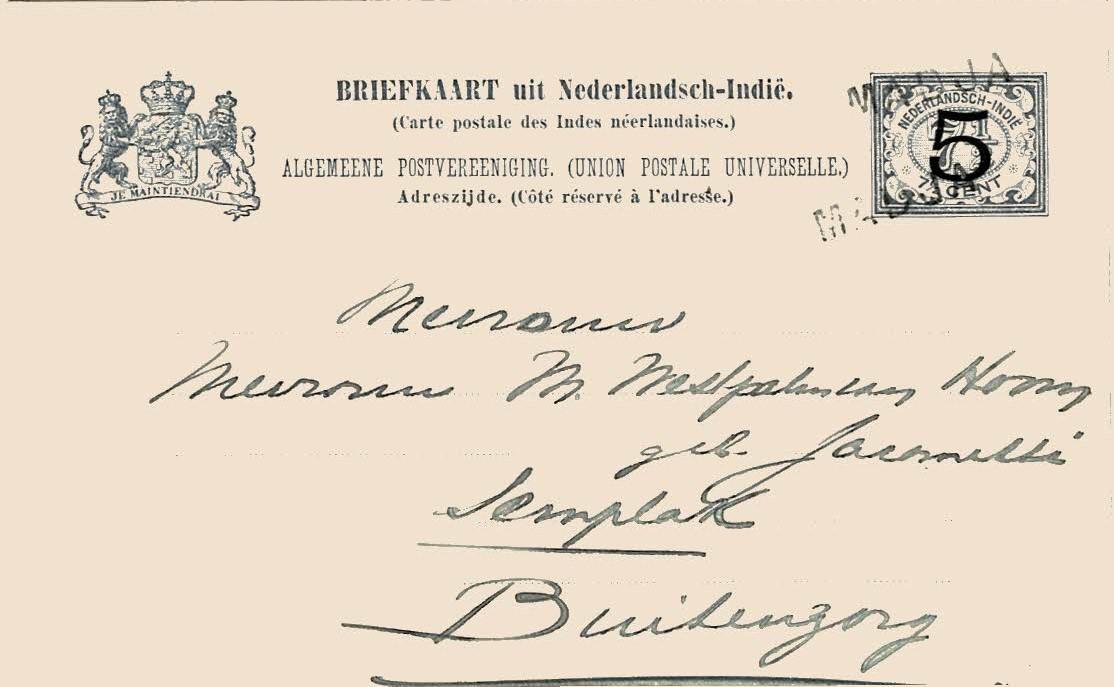 BRIEFKAART uit Nederlandsch-Indië.
(Carte postale des Indes néerlandaises.)
ALGEMEENE POSTVEREENIGING. (UNION POSTALE UNIVERSELLE.)
Adreszijde. (Côté réservé à l'adresse.)
JE MAINTIENDRAI
NEDERLANDSCH-INDIË
5
7½ CENT
Mevrouw
Mevrouw
geb.
Semplak
Buitenzorg